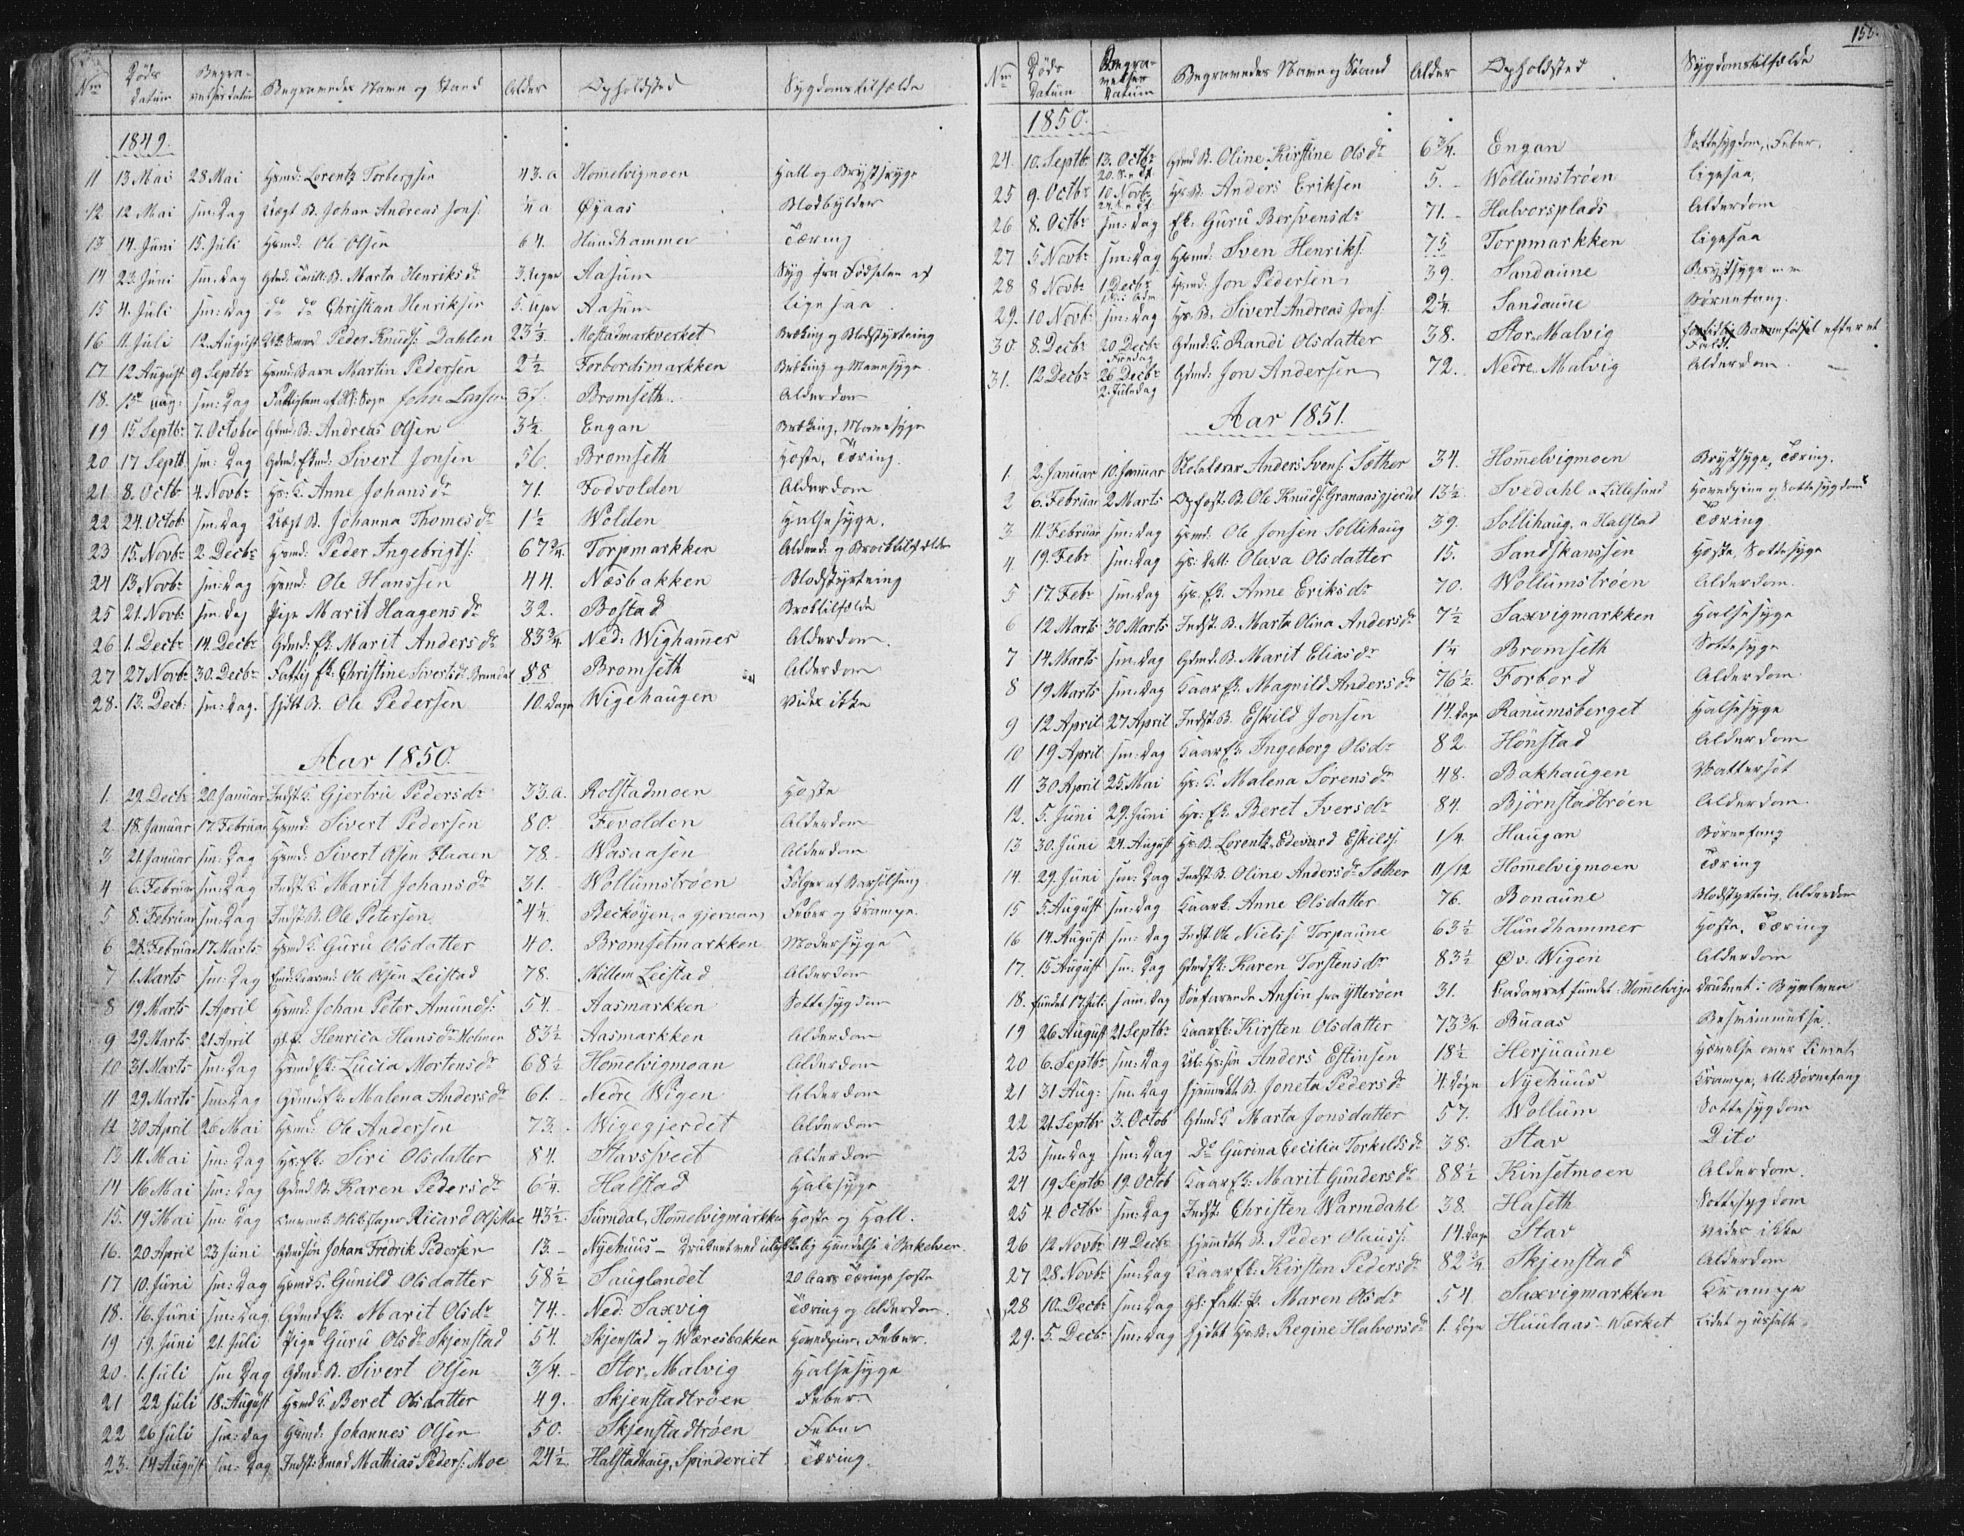 Nm Døds Datum Begravelses datum Begravedes Navn og Stand Alder Opholdsted Sygdomstilfælde
1849.
11 13 Mai 28 Mai Husmd: Lorentz Torbergsen 43. a Hommelvigmoen Hall og Brystsyge
12 12 Mai sm: Dag Uægt B. Johan Andreas Jons: 4 a Øyaas Blodbylder
13 14. Juni 15. Juli Husmd: Ole Olsen 64. Hundhammer Tæring
14 23. Juni sm: Dag Gdmd. Tvill: B. Marta Henriksdr 3. Uger Aasum Syg fra Fødselen af
15 4. Juli sm: Dag do do Christian Henriksen 5. Uger Aasum ligesaa
16 11. Juli 12. August Peder Knuds: Dahlen 23 1/3 Mostadmarkverket Brækning og Blodstyrtning
17 12 August 9 Septbr Husmd Barn Martin Pedersen 2 1/2 Forbordsmarkken Brækning og Mavesyge
18. 15de Aug: sm: Dag Fattiglem af Sogn John Larsen 87. Bromseth Alderdom
19 15 Septbr 7. October Gdmd: B: Andreas Olsen 3 1/2. Engan Brækning, Mavesyge
20 17 Septb sm: Dag Gdmd: Ekmd: Sivert Jonsen 56. Bromseth Hoste, Tæring
21 8. Octb 4. Novbr Hus: K. Anne Johansdr 71. Fodvolden Alderdom
22 24. Octob sm: Dag Uægt B. Johanna Thomesdr 1 1/2 Wolden Halsesyge.
23 15. Novbr 2. Decbr Husmd: Peder Ingebrigts: 67 3/4. Torpmarkken Alderd: og Broktilfælde
24 13 Novbr sm: Dag Husmd: Ole Hanssen 44. Næsbakken Blodstyrtning
25 21. Novb: sm: Dag Pige Marit Haagensdr 32. Bostad Broktilfælde
26 1. Decbr 14. Decbr Gdmd: Ek: Marit Andersdr 83 3/4 Ned: Wighamer Alderdom
27 27 Novbr 30. Decbr Fattig Ek: Christine Sivertsdr Brendal 88 Bromseth Alderdom
28. 13. Decb: sm: Dag. Hjdbt B. Ole Pedersen 10. Dage Wigehaugen Vides ikke
Aar 1850.
1. 29. Decbr 20 Januar Indst: K. Gjertru Pedersdr 33. a. Rolstadmoen Hoste
2. 18. Januar 17. Februar Husmd: Sivert Pedersen 80. Fevolden Alderdom
3 21. Januar sm: Dag Husmd: Sivert Olsen Haaen 78. Wasaasen Alderdom
4 6. Februar sm: Dag Indst: K. Marit Johansdr 31. Wollumstrøen Følger af Barselseng.
5 8. Februar sm: Dag Indst: B. Ole Petersen 4 1/4. Beckøyen, a Gjervan Feber og Krampe.
6 24. Februar 17 Marts Husmd K. Guru Olsdatter 40. Bromsetmarkken Modersyge
7 1. Marts sm: Dag Ole Olsen Leistad 78. Millem Leistad Alderdom
8 19. Marts 1. April Husmd: Johan Peter Amunds: 54. Aasmarkken Sottesygdom
9 29. Marts 21 April Henrica Hansdr Melmen 83 1/2 Aasmarkken Alderdom
10 31 Marts sm: Dag Husmd Ek: Lucia Mortensdr 68 1/2 Hommelvigmoan Alderdom
11 29 Marts sm: Dag Gdmd: Ek Malena Andersdr 61. Nedre Wigen Alderdom
12 30 April 26 Mai Husmd: Ole Andersen 73. Wigegjerdet Alderdom
13 11. Mai sm: Dag Hus: Ek: Siri Olsdatter 84. Stavsveet Alderdom
14 16 Mai sm: Dag Gdmd B. Karen Pedersdr 6 1/4. Halstad Halssyge
15. 19 Mai sm: Dag Ricard Ols: Moe 43 1/2. Surndal, Hommelvigmarkken Hoste og Hall.
16. 20 April 23 Juni Gdmdsøn Johan Fredrik Pedersen 13. Nyehuus Druknet ved ulykkelig Hændelse i Bækelven.
17 10. Juni sm: Dag Husmd K. Gunild Olsdatter 58 1/2 Sauglandet 20 Aars Tærings hoste
18. 16. Juni sm: Dag Gdmd Ek: Marit Olsdr 74. Ned. Saxvig Tæring og Alderdom.
19 19. Juni 21. Juli Pige Guru Olsdr Skjenstad 54. Skjenstad og Wæresbakken Hovedpine, Feber.
20. 1. Juli sm Dag Gdmd: B. Sivert Olsen 3/4. Stor. Malvig Halsesyge
21 22 Juli 18. August Husmd K. Beret Olsdatter 49. Skjenstadtrøen Feber.
22 26 Juli sm: Dag Husmd: Johannes Olsen 50. Skjenstadtrøen Feber
23. 14 August sm: Dag Indst: Smed Mathias Peders: Moe 24 1/2. Halstadhaug, Spinderiet Tæring.
150.
Nm Døds Datum Begravelses Datum Begravedes Navn og Stand Alder Opholdsted Sygdomstilfælde
1850.
24. 10. Septbr 13. Octbr Gdmd B. Oline Kirstine Olsdr 6 3/4. Engan Sottesygdom, Feber,
25 9. Octbr 10. Novbr Hus B: Anders Eriksen 5. Wollumstrøen ligesaa,
26 8. Octbr sm: Dag Ek: Guru Borsvensdr 71. Halvorsplads Alderdom
27 5 Novbr sm: Dag Husmd: Sven Henriks: 75 Torpmarkken ligesaa
28 8 Novbr 1 Decbr Husmd: Jon Pedersen 39. Sandaune Brystsyge m. m.
29. 10 Novb sm: Dag Hus. B. Sivert Andreas Jons: 2 1/4. Sandaune Børnetang.
30. 8. Decbr 20 Decbr Fredag Gdmd: K. Randi Olsdatter 38. Stor. Malvig Barnefødsel efter et Fald.
31. 12 Decbr 26 Decbr 2. Juledag Gdmd: Jon Andersen 72. Nedre. Malvig Alderdom
Aar 1851.
1. 2. Januar 10. Januar Skolelærer Anders Svens: Sæther 34. Hommelvigmoen Brystsyge, Tæring.
2 6. Februar 2 Marts Opfost: B. Ole Knuds: Granaasgjerdet 13 1/2. Svedahl a Lillesand Hovedpine og Sottesygdom
3 11. Februar sm: Dag Husmd: Ole Jonsen Sollihaug 39. Sollihaug, a Halstad Tæring
4 19. Febr sm: Dag Hus: Datt: Olava Olsdatter 15. Sandskanssen Hoste, Sottesyge
5 17 Febr sm: Dag Hus. Ek: Anne Eriksdr 70. Wollumstrøen Alderdom.
6 12 Marts 30 Marts Indst: B. Marta Olina Andersdr 7 1/2 Saxvigmarkken Halsesyge
7 14. Marts sm: Dag Gdmd: B. Marit Eliasdr 1 1/4 Bromseth Sottesyge
8 19 Marts sm: Dag Kaar Ek: Magnild Andersdr 76 1/2. Forbord Alderdom.
9 12 April 27 April Indst: B. Eskild Jonsen 14. Dage Ranumsberget Halsesyge
10 19 April sm: Dag Kaar Ek: Ingeborg Olsdr 82. Hønstad Alderdom
11 30 April 25. Mai Hus: K. Malena Sørensdr 48. Bakhaugen Vattersot
12. 5. Juni 29. Juni Hus: Ek: Beret Iversdr 84. Bjørnstadtrøen Alderdom.
13 30. Juni 24. August Hus B: Lorentz Edevard Eskilds: 1/4. Haugan Børnetang
14. 29. Juni sm: Dag Indst B. Oline Andersdr Sæther 11/12 Hommelvigmoen Tæring
15 5. August sm: Dag Kaark: Anne Olsdatter 76. Bonaune Blodstyrtning, Alderdom
16 14. August sm: Dag Indst Ole Niels: Torpaune 63 1/2 Hundhammer Hoste, Tæring
17. 15 August sm: Dag Gdmd Ek: Karen Torstensdr 83 1/2 Øv. Wigen Alderdom
18. fundet 17 Juli: sam. Dag Søefarende Ansin fra Ytterøen 31. Cadavret fundet Hommelvigen Druknet i Bynelven
19 26 August 21 Septbr Kaar Ek: Kirsten Olsdatter 73 3/4. Buaas Besvimmelse.
20 6. Septbr sm: Dag Anders Estinsen 18 1/2 Herjuaune Hævelse over Livet
21 31 Aug: sm: Dag Hjemmebt B. Joneta Pedersdr 4. Døge Nyehuus Krampe, ell. Børnetang
22 21. Septbr 3. Octob Gdmd K Marta Jonsdatter 57. Wollum Sottesygdom
23 sm: Dag sm: Dag Do Gurina Cecilia Torkeldsdr 38. Stav Dito
24 19 Septbr 19. Octob Kaar Ek: Marit Gundersdr 88 1/2 Kinsetmoen Alderdom.
25 4. Octbr sm: Dag Indst: Christen Warmdahl 38. Haseth Sottesygdom
26 12 Novbr 14 Decbr Hjemdbt B. Peder Olauss: 14. Dage Stav Vides ikke
27 28 Novbr sm: Dag Kaar Ek: Kirsten Pedersdr 82 3/4 Skjenstad Alderdom
28 10. Decbr sm: Dag Gl: Fatt: P. Maren Olsdr 54 Saxvigmarkken Krampe
29. 5. Decbr sm: Dag Hjdbt Hus B. Regine Halvorsdr 1. Døge Huulaas-Wærket Lidet og usselt.